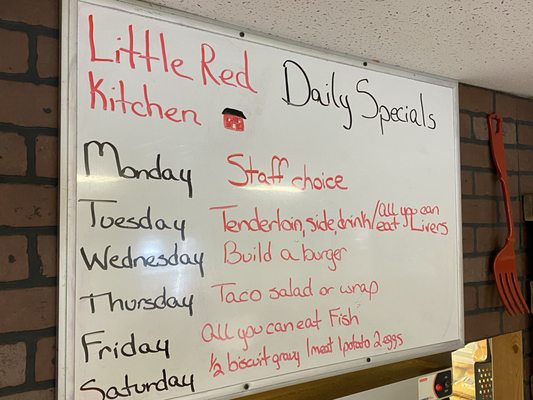 Little Red
Kitchen
Daily Specials
Monday Staff choice
Tuesday Tenderloin, side, drink/all you can eat Livers
Wednesday Build a burger
Thursday Taco salad or wrap
Friday All you can eat Fish
Saturday 1/2 biscuit gravy 1meat 1potato 2eggs